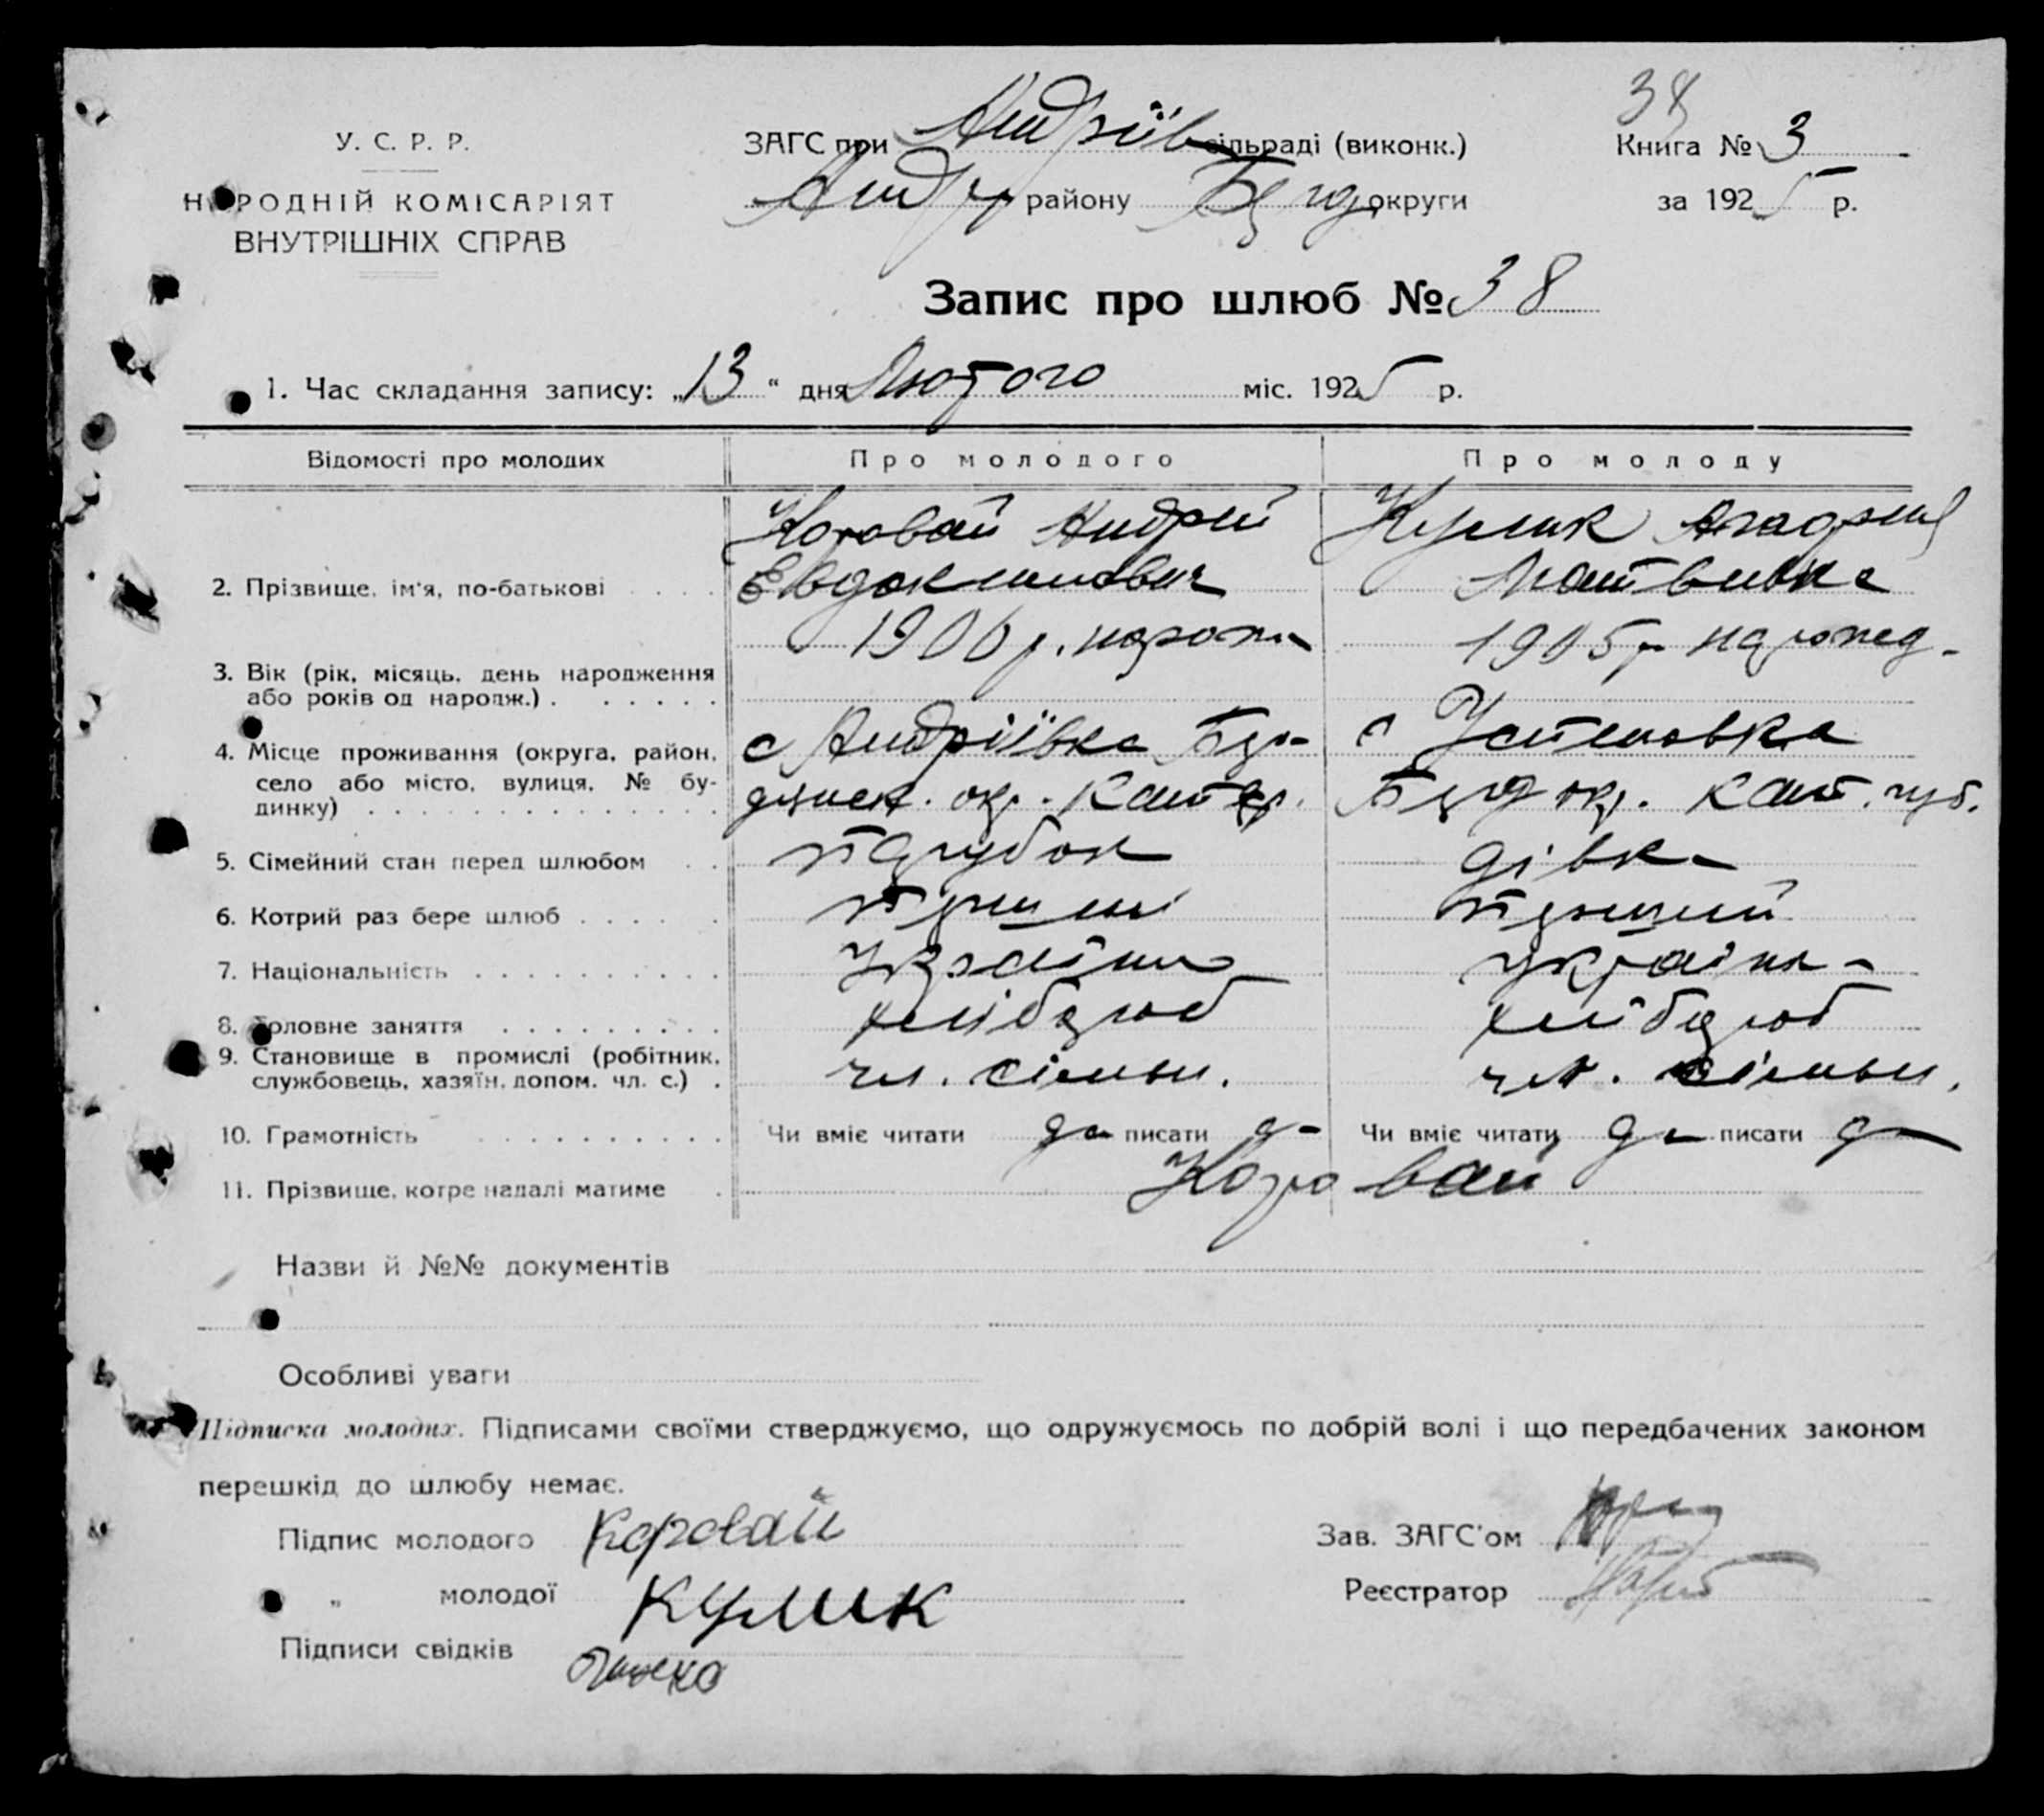 38
У. С. Р. Р.
НАРОДНІЙ КОМІСАРІЯТ
ВНУТРІШНІХ СПРАВ
ЗАГС при Андріїв сільраді (виконк.)
Андр району Берд округи
Книга № 3
за 1925 р.
Запис про шлюб № 38
1. Час складання запису: „13“ дня Лютого міс. 1925 р.
Відомості про молодих Про молодого Про молоду
2. Прізвище, ім'я, по-батькові . . . .
Коровай Андрій
Евдокимович
Кулик
Матвиевна
3. Вік (рік, місяць, день народження
або років од народж.) . . . . . .
1906 р. народж
1905 р народ
4. Місце проживання (округа, район,
село або місто, вулиця, № бу-
динку) . . . . . . . . . . . . . .
с Андріївка Бер-
дянск. окр. Катер.
с Устеновка
Берд окр. Кат. губ.
5. Сімейний стан перед шлюбом . . парубок дівка
6. Котрий раз бере шлюб . . . . . перший
7. Національність . . . . . . . . . .
8. Головне заняття . . . . . . . . . хлібороб хлібороб
9. Становище в промислі (робітник,
службовець, хазяїн, допом. чл. с.) .
чл. сімьи. чл. сімьи.
10. Грамотність . . . . . . . . . . Чи вміє читати да писати да Чи вміє читати да писати да
11. Прізвище, котре надалі матиме . Коровай
Назви й №№ документів
Особливі уваги
Підписка молодих. Підписами своїми стверджуємо, що одружуємось по добрій волі і що передбачених законом
перешкід до шлюбу немає.
Підпис молодого Коровай
„ молодої Кулик
Підписи свідків
Зав. ЗАГС'ом
Реєстратор